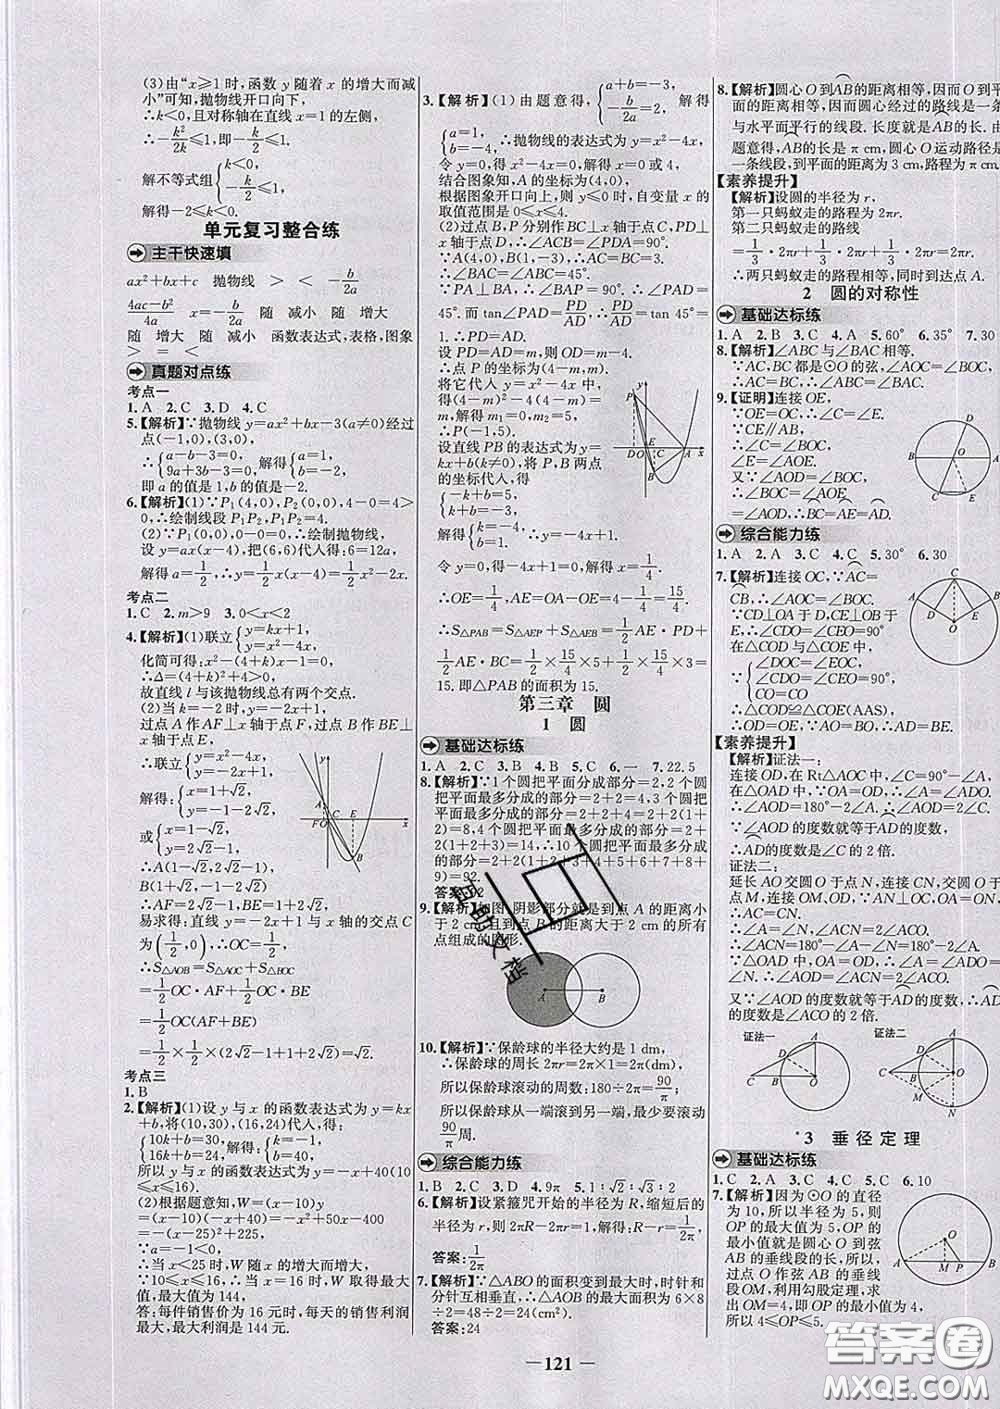 (3)由“x≥1时,函数y随着x的增大而减
小”可知,抛物线开口向下,
∴k<0,且对称轴在直线x=1的左侧,
∴-k²/2k≤1,即-k/2≤1.
解不等式组{k<0, -k/2≤1.
解得-2≤k<0.
单元复习整合练
主干快速填
ax²+bx+c 抛物线 > < -b/2a
(4ac-b²)/4a x=-b/2a 随 减小 随 增大
随 增大 随 减小 函数表达式,表格,图象
> = <
真题对点练
考点一
1.A 2.C 3.D 4.C
5.【解析】∵抛物线y=ax²+bx-3(a≠0)经过
点(-1,0),(3,0),
∴{a-b-3=0, 9a+3b-3=0, 解得{a=1, b=-2.
即a的值是1,b的值是-2.
6.【解析】(1)∵P₁(4,0),P₂(0,0),4-0=4>
0,∴绘制线段P₁P₂,P₁P₂=4.
(2)∵P₁(0,0),0-0=0,∴绘制抛物线,
设y=ax(x-4),把(6,6)代入得:6=12a,
解得a=1/2,∴y=1/2x(x-4)=1/2x²-2x.
考点二
1.C 2.m>9 3.0<x<2
4.【解析】(1)联立{y=kx+1, y=x²-4x,
化简可得:x²-(4+k)x-1=0,
∴Δ=(4+k)²+4>0,
故直线l与该抛物线总有两个交点.
(2)当k=-2时,y=-2x+1,
过点A作AF⊥x轴于点F,过点B作BE⊥
x轴于点E,
∴联立{y=x²-4x, y=-2x+1,
解得:{x=1+√2, y=-1-2√2,
或{x=1-√2, y=2√2-1,
∴A(1-√2,2√2-1),
B(1+√2,-1-2√2),
∴AF=2√2-1,BE=1+2√2,
易求得:直线y=-2x+1与x轴的交点C
为(1/2,0),∴OC=1/2,
∴S△AOB=S△AOC+S△BOC
=1/2OC·AF+1/2OC·BE
=1/2OC(AF+BE)
=1/2×1/2×(2√2-1+1+2√2)=√2.
考点三
1.B
2.【解析】(1)设y与x的函数表达式为y=kx
+b,将(10,30),(16,24)代入,得:
{10k+b=30, 16k+b=24, 解得:{k=-1, b=40.
所以y与x的函数表达式为y=-x+40(10
≤x≤16).
(2)根据题意知,W=(x-10)y
=(x-10)(-x+40)=-x²+50x-400
=-(x-25)²+225,
∵a=-1<0,
∴当x<25时,W随x的增大而增大,
∵10≤x≤16,∴当x=16时,W取得最大
值,最大值为144,
答:每件销售价为16元时,每天的销售利润
最大,最大利润是144元.
3.【解析】(1)由题意得,{a+b=-3, -b/2a=2,
∴{a=1, b=-4, ∴抛物线的表达式为y=x²-4x.
令y=0,得x²-4x=0,解得x=0或4,
结合图象知,A的坐标为(4,0),
根据图象开口向上,则y≤0时,自变量x的
取值范围是0≤x≤4.
(2)过点B,P分别作BC⊥x轴于点C,PD⊥
x轴于点D,∴∠ACB=∠PDA=90°.
∵A(4,0),B(1,-3),∴AC=BC=3.
∴∠BAC=∠ABC=45°.
∵PA⊥BA,∴∠BAP=90°.∴∠PAD=
45°.而tan∠PAD=PD/AD,∴PD/AD=tan45°=
1.∴PD=AD.
设PD=AD=m,
∴点P的坐标为(4-m,m).
将它代入y=x²-4x中,得
(4-m)²-4(4-m)=
m,解得m₁=0,m₂=5,
∴P(-1,5).
设直线PB的表达式为y=
kx+b(k≠0),将P,B两点
的坐标代入,得
{-k+b=5, k+b=-3,
解得{k=-4, b=1.∴y=-4x+1.
令y=0,得-4x+1=0,解得x=1/4,
∴OE=1/4,AE=OA-OE=4-1/4=15/4.
∴S△PAB=S△AEP+S△AEB=1/2AE·PD+
1/2AE·BC=1/2×15/4×5+1/2×15/4×3=
15.即△PAB的面积为15.
第三章 圆
1 圆
基础达标练
1.A 2.C 3.B 4.B 5.C 6.一 7.22.5
8.【解析】∵1个圆把平面分成部分=2,2个圆
把平面最多分成的部分=2+2=4,3个圆
把平面最多分成的部分=2+2+4=2+2(1+
2)=8,4个圆把平面最多分成的部分=2+
2(1+2+3)=14,∴10个圆把平面最多分
成的部分=2+2(1+2+3+4+5+6+7+8+
9)=92.
答案:92
9.【解析】如图,阴影部分就是到点A的距离小
于2cm,且到点B的距离大于2cm的所有
点组成的图形.
A B
10.【解析】∵保龄球的半径大约是1dm,
∴保龄球的周长2π×1=2π(dm),
所以保龄球滚动的周数:180÷2π=90/π;
所以保龄球从一端滚到另一端,最少要滚动
90/π周.
综合能力练
1.B 2.C 3.D 4.9π 5.1∶√2∶√3∶2
6.【解析】设紧箍咒开始的半径为R,缩短后的
半径为r,则2πR-2πr=1,解得:R-r=1/2π.
答案:1/2π
7.【解析】∵△ABO的面积变到最大时,时针和
分针互相垂直,∴△ABO的最大面积为6×8
÷2=48÷2=24(cm²).
答案:24
8.【解析】圆心O到AB的距离相等,因而O到平
面的距离相等,因而圆心经过的路线是一条
与水平面平行的线段.长度就是AB的长.由
题意得,AB的长是πcm,圆心O运动路径是
一条线段,到平面的距离为3cm,路程为πcm.
【素养提升】
【解析】设圆的半径为r,
第一只蚂蚁走的路程为2πr.
第二只蚂蚁走的路程
=1/3·2πr+1/3·2πr+1/3·2πr=2πr,
∴两只蚂蚁走的路程相等,同时到达点A.
2 圆的对称性
基础达标练
1.A 2.B 3.C 4.A 5.60° 6.35° 7.30
8.【解析】∠ABC与∠BAC相等.
∵AC,BC都是⊙O的弦,∠AOC=∠BOC,
∴AC=BC.∴∠ABC=∠BAC.
9.【证明】连接OE,
∵OE=OC,∴∠C=∠E.
∵CE∥AB,
∴∠C=∠BOC,
∠E=∠AOE.
又∵∠AOD=∠BOC,
∴∠AOD=∠BOC=∠AOE
=∠AOD,∴BC=AE=AD.
综合能力练
1.A 2.A 3.C 4.C 5.30° 6.30
7.【解析】连接OC,∵AC=
CB,∴∠AOC=∠BOC.
∵CD⊥OA于D,CE⊥OB于
E,∴∠CDO=∠CEO=90°,
在△COD与△COE中,
{∠DOC=∠EOC, ∠CDO=∠CEO=90°, CO=CO,
∴△COD≌△COE(AAS),
∴OD=OE.∵AO=BO,∴AD=BE.
【素养提升】
【解析】证法一:
连接OD,在Rt△AOC中,∠C=90°-∠A,
在△OAD中,∵OA=OD,∴∠A=∠ADO.
∴∠AOD=180°-2∠A,∴∠AOD=2∠C.
又∵∠AOD的度数就等于AD的度数,
∴AD的度数是∠C的2倍.
证法二:
延长AO交圆O于点N,连接CN,CN交圆于
点M,连接OM,OD.∵OA=ON,OC⊥AN,
∴AC=CN.
∴∠ACN=180°-∠A-∠N=180°-2∠A.
∵∠AOD=180°-2∠A,
∴∠AOD=∠ACN=2∠ACO.
又∵∠AOD的度数就等于AD的度数,∴AD
的度数是∠ACO的2倍.
证法一 证法二
*3 垂径定理
基础达标练
1.C 2.C 3.A 4.D 5.C 6.10
7.【解析】因为⊙O的直径
为10,所以半径为5,则
OP的最大值为5,OP的
最小值就是圆心O到弦
AB的垂线段的长,所以,
过点O作弦AB的垂线
OM,利用勾股定理,求
出OM=4,即OP的最小值为4,所
以4≤OP≤5.
121
答案圈
MXQE.COM